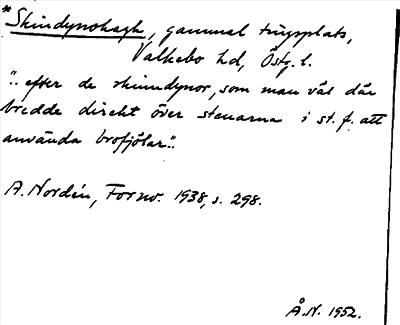 * Skindynohagh, gammal tingsplats,
Valkebo hd, Östg. l.
".. efter de skinndynor, som man väl där
bredde direkt över stenarna i st. f. att
använda brofjölar"..
A. Nordén, Fornv. 1938, s. 298.
Å.N. 1952.